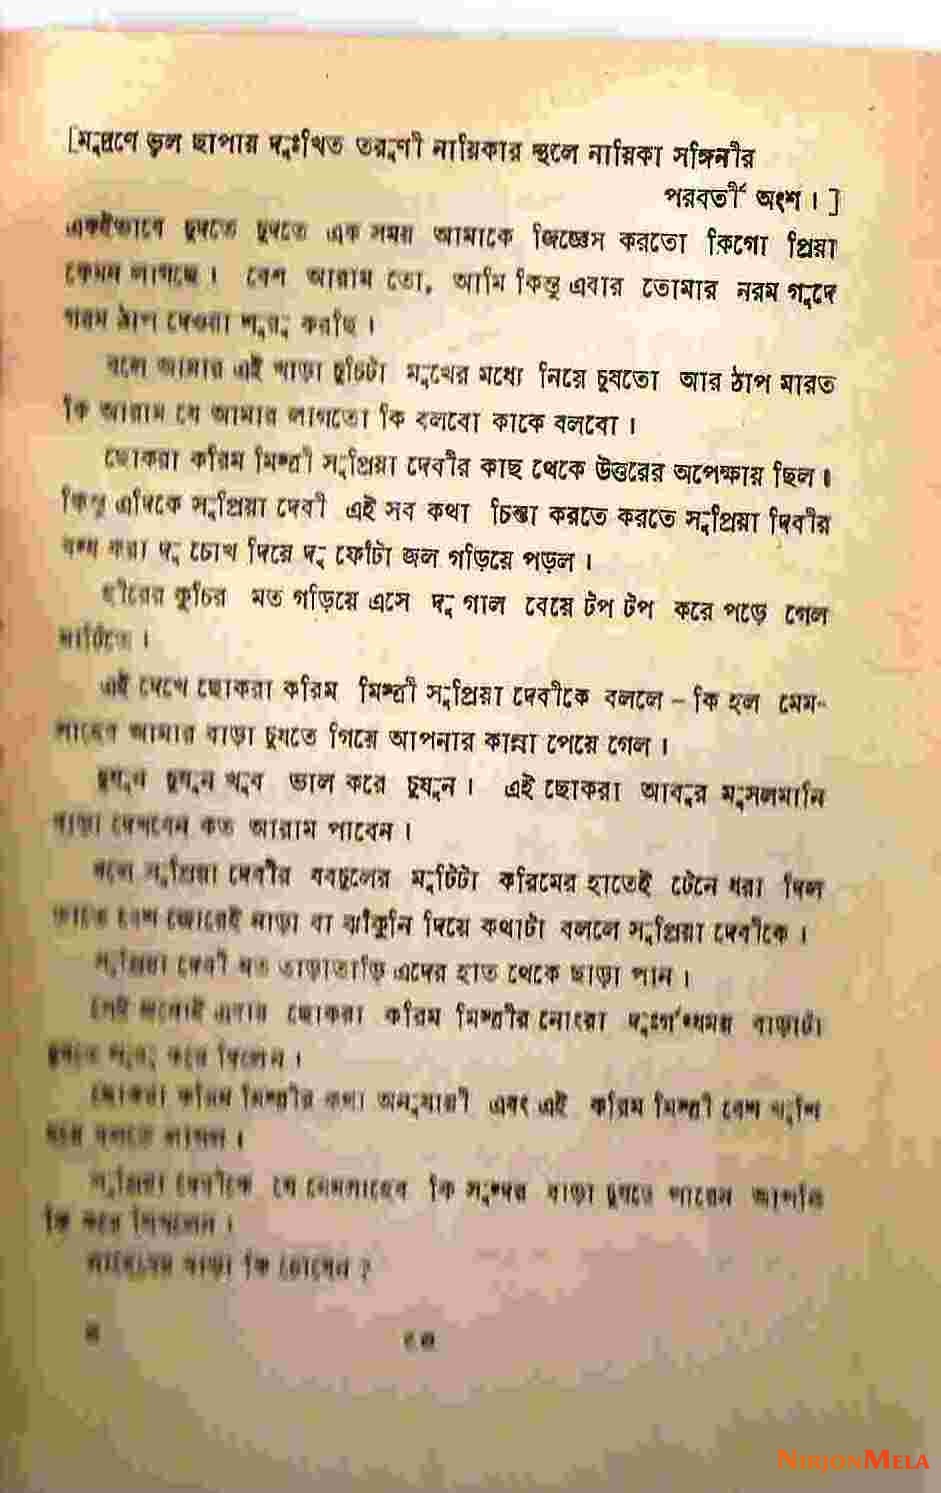 [মুদ্রণে ভুল ছাপায় দুঃখিত তরুণী নায়িকার স্থলে নায়িকা সঙ্গিনীর
পরবর্তী অংশ । ]
একইভাবে চুষতে চুষতে এক সময় আমাকে জিজ্ঞেস করতো কিগো প্রিয়া
কেমন লাগছে । বেশ আরাম তো, আমি কিন্তু এবার তোমার নরম গুদে
গরম ঠাপ দেওয়া শুরু করছি ।
বলে আমার এই খাড়া চুচিটা মুখের মধ্যে নিয়ে চুষতো আর ঠাপ মারত
কি আরাম যে আমার লাগতো কি বলবো কাকে বলবো ।
ছোকরা করিম মিস্ত্রী সুপ্রিয়া দেবীর কাছ থেকে উত্তরের অপেক্ষায় ছিল ।
কিন্তু এদিকে সুপ্রিয়া দেবী এই সব কথা চিন্তা করতে করতে সুপ্রিয়া দিবীর
বন্ধ করা দু চোখ দিয়ে দু ফোঁটা জল গড়িয়ে পড়ল ।
হীরের কুচির মত গড়িয়ে এসে দু গাল বেয়ে টপ টপ করে পড়ে গেল
মাটিতে ।
এই দেখে ছোকরা করিম মিস্ত্রী সুপ্রিয়া দেবীকে বললে – কি হল মেম-
সাহেব আমার বাড়া চুষতে গিয়ে আপনার কান্না পেয়ে গেল ।
চুষুন চুষুন খুব ভাল করে চুষুন । এই ছোকরা আবুর মুসলমানি
বাড়া দেখবেন কত আরাম পাবেন ।
বলে সুপ্রিয়া দেবীর ববচুলের মুটিটা করিমের হাতেই টেনে ধরা ছিল
তাতে বেশ জোরেই নাড়া বা ঝাঁকুনি দিয়ে কথাটা বললে সুপ্রিয়া দেবীকে ।
সুপ্রিয়া দেবী যত তাড়াতাড়ি এদের হাত থেকে ছাড়া পান ।
সেই জন্যেই এবার ছোকরা করিম মিস্ত্রীর নোংরা দুঃর্গন্ধময় বাড়াটা
চুষতে শুরু করে দিলেন ।
ছোকরা করিম মিস্ত্রীর কথা অনুযায়ী এবং এই করিম মিস্ত্রী বেশ খুশি
হয়ে বলতে লাগল ।
সুপ্রিয়া দেবীকে যে মেমসাহেব কি সুন্দর বাড়া চুষতে পারেন আপনি
কি করে শিখলেন ।
সাহেবের বাড়া কি চোষেন ?
NIRJONMELA